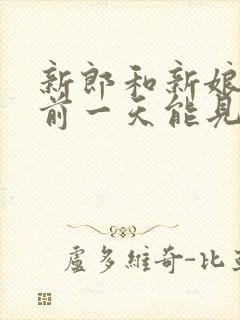 新郎和新娘
前一天能見
盧多維奇-比亞